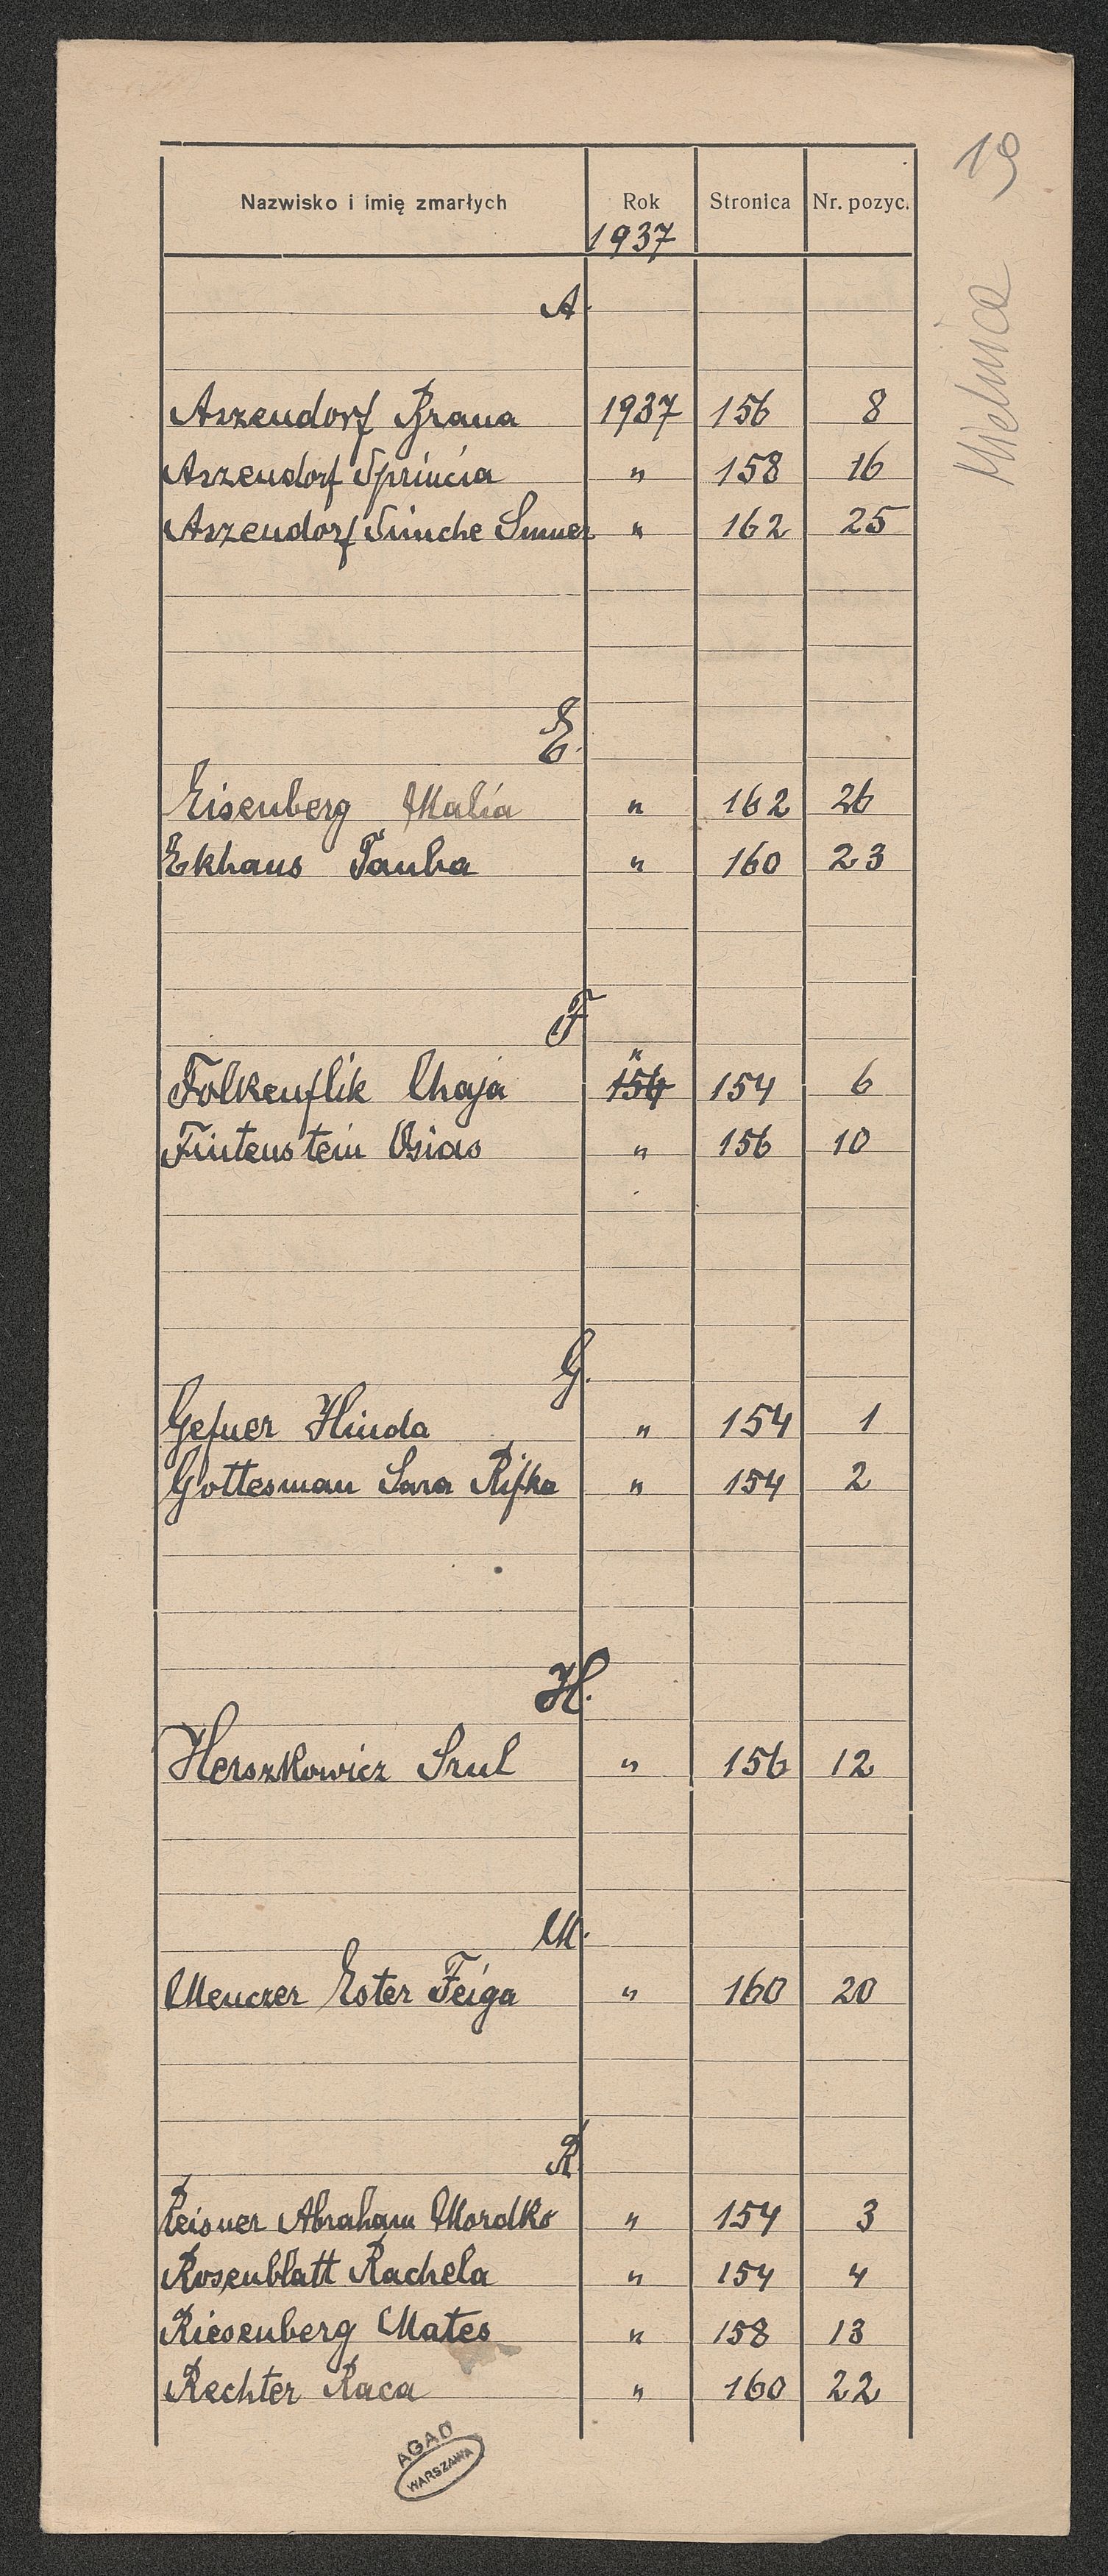 19
Mielnica
Nazwisko i imię zmarłych Rok Stronica Nr. pozyc.
1937
A.
Aszendorf Brana 1937 156 8
Aszendorf Sprincia " 158 16
Aszendorf Simche " 162 25
E.
Eisenberg Malia " 162 26
Ekhaus Tauba " 160 23
F
Folkenflik Chaja " 154 154 6
Fintenstein Osias " 156 10
G.
Gefner Hinda " 154 1
Gottesman Sara Rifka " 154 2
H.
Herszkowicz Srul " 156 12
M.
Menczer Ester Feiga " 160 20
R.
Reisner Abraham Mordko " 154 3
Rosenblatt Rachela " 154 4
Riesenberg Mates " 158 13
Rechter Raca " 160 22
AGAD
WARSZAWA